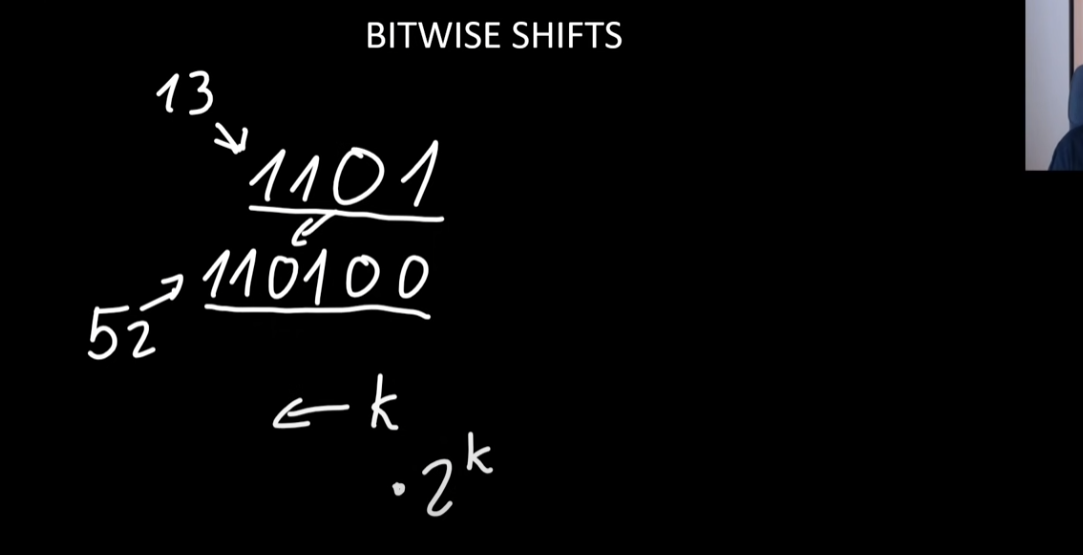 BITWISE SHIFTS
13
1101
110100
52
← k
· 2^k